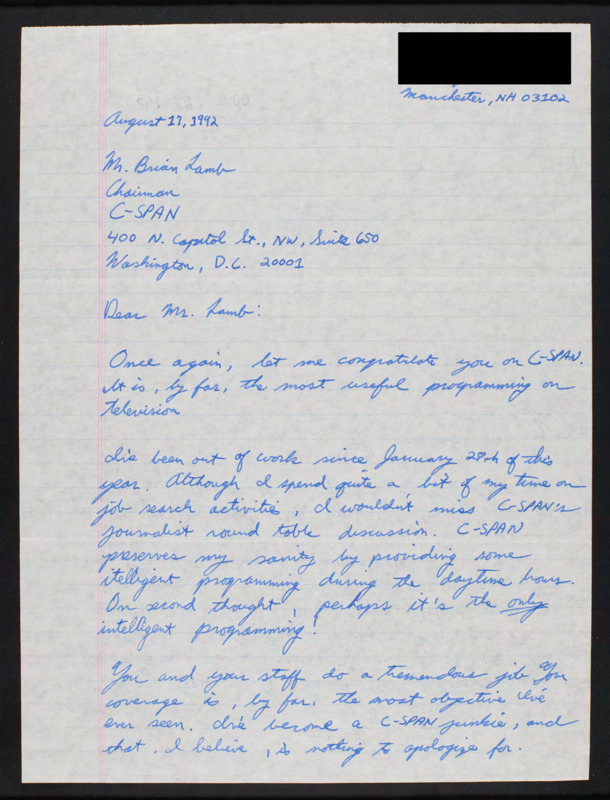 Manchester, NH 03102
August 17, 1992
Mr. Brian Lamb
Chairman
C-SPAN
400 N. Capotal St., NW, Suite 650
Washington, D.C. 20001
Dear Mr. Lamb:
Once again, let me congratulate you on C-SPAN.
It is, by far, the most useful programming on
television
I've been out of work since January 28th of this
year. Although I spend quite a bit of my time on
job search activities, I wouldn't miss C-SPAN's
journalist round table discussion. C-SPAN
preserves my sanity by providing some
itelligent programming during the daytime hours.
On second thought, perhaps it's the only
intelligent programming!
You and your staff do a tremendous job. You
coverage is, by far, the most objective I've
ever seen. I've become a C-SPAN junkie, and
that, I believe, is nothing to apologize for.